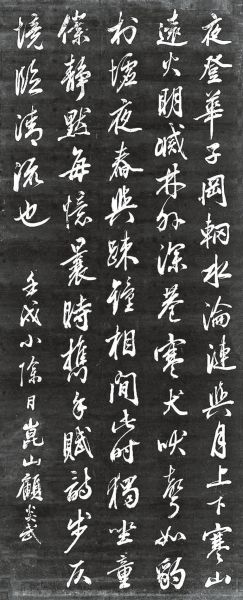 夜登華子岡輞水淪漣與月上下寒山
遠火明滅林外深巷寒犬吠聲如豹
村墟夜舂與疎鐘相間此時獨坐童
僕靜默每憶曩時携手賦詩步仄
境臨清流也
壬戌小除日崑山顧炎武